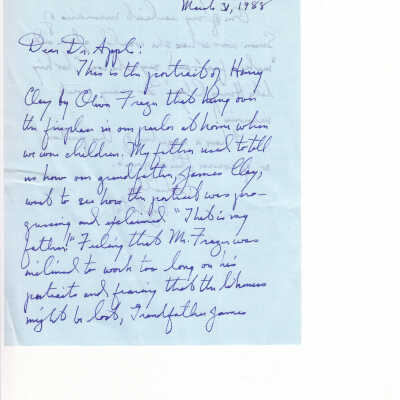 March 31, 1988
Dear Dr. Appl:
This is the portrait of Henry
Clay by Oliver Frazer that hung over
the fireplace in our parlor at home when
we were children. My father used to tell
us how our grandfather, James Clay,
went to see how the portrait was pro-
gressing and exclaimed "That is my
father!" Feeling that Mr. Frazer was
inclined to work too long on his
portraits and fearing that the likeness
might be lost, Grandfather James